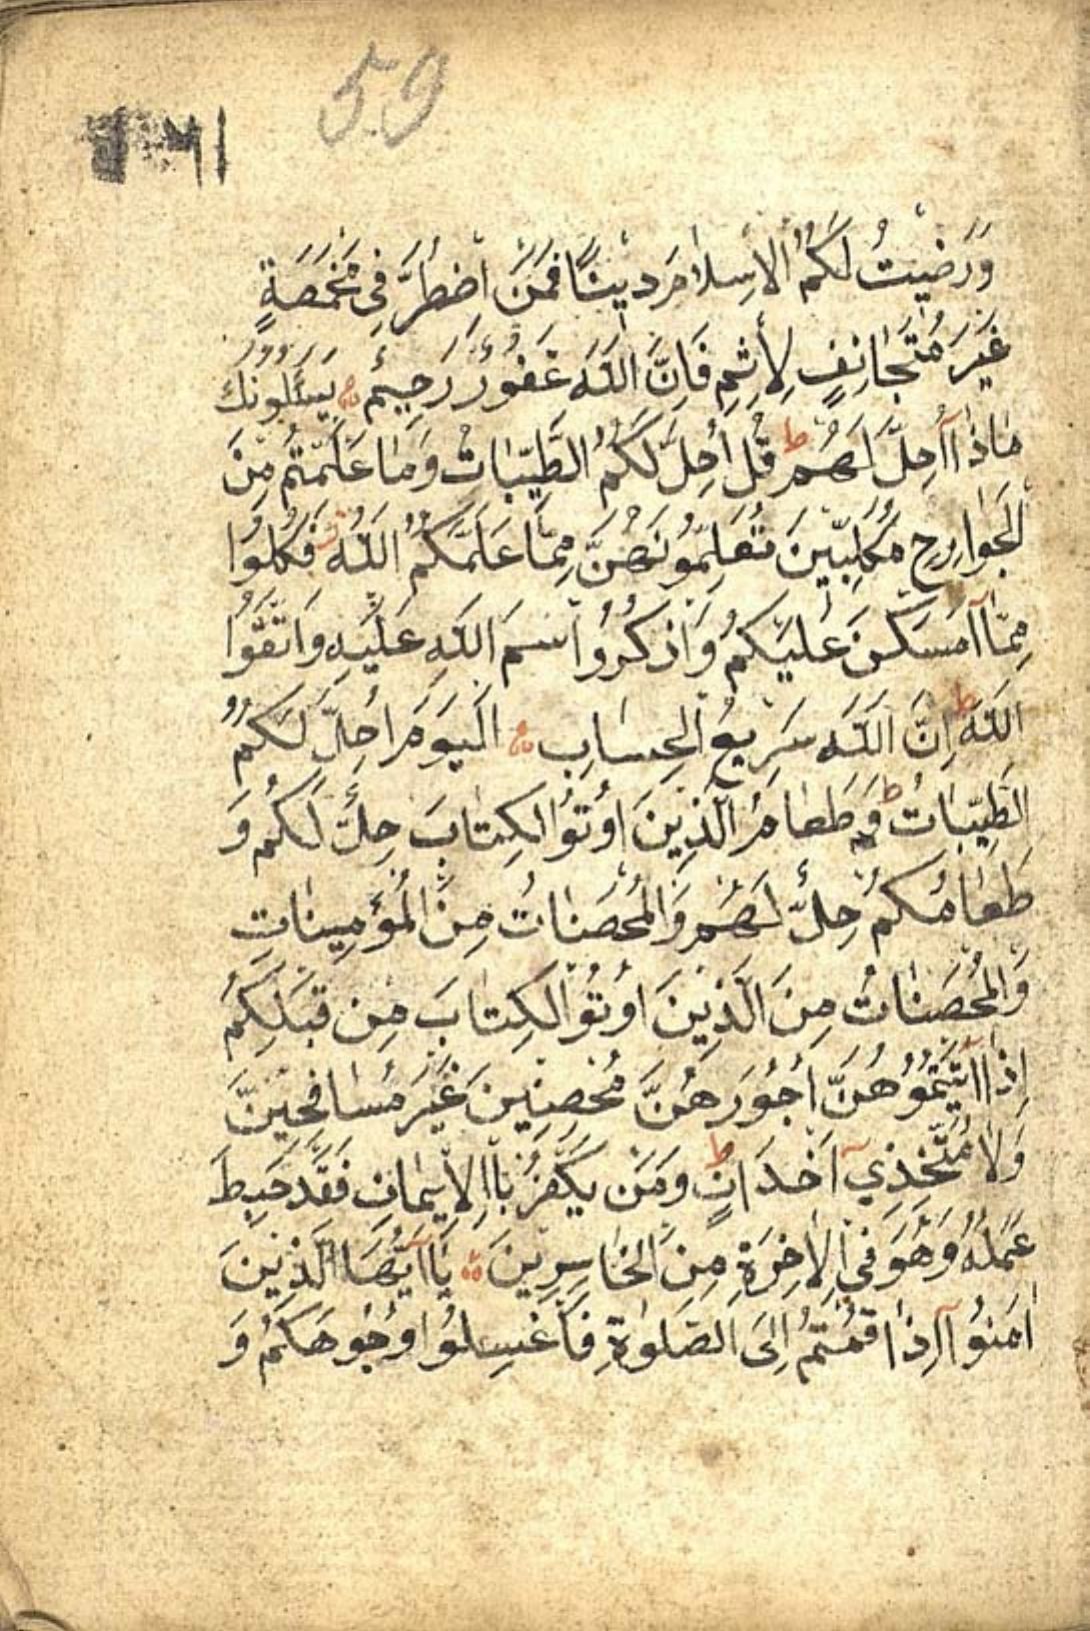 59
وَرَضِيتُ لَكُمُ الْاِسْلَامَ دِينًا فَمَنْ اضْطُرَّ فِى مَخْمَصَةٍ
غَيْرَ مُتَجَانِفٍ لِأِثْمٍ فَاِنَّ اللّٰهَ غَفُورٌ رَحِيمٌ يَسْئَلُونَكَ
مَاذَا آاُحِلَّ لَهُمْ ط قُلْ اُحِلَّ لَكُمُ الطَّيِّبَاتُ وَمَا عَلَّمْتُمْ مِنَ
الْجَوَارِحِ مُكَلِّبِينَ تُعَلِّمُونَهُنَّ مِمَّا عَلَّمَكُمُ اللّٰهُ فَكُلُوا
مِمَّا آاَمْسَكْنَ عَلَيْكُمْ وَاذْكُرُوا اسْمَ اللّٰهِ عَلَيْهِ وَاتَّقُوا
اللّٰهَ ط اِنَّ اللّٰهَ سَرِيعُ الْحِسَابِ اَلْيَوْمَ اُحِلَّ لَكُمُ
الطَّيِّبَاتُ ط وَطَعَامُ الَّذِينَ اُوتُوا الْكِتَابَ حِلٌّ لَكُمْ وَ
طَعَامُكُمْ حِلٌّ لَهُمْ وَالْمُحْصَنَاتُ مِنَ الْمُؤْمِنَاتِ
وَالْمُحْصَنَاتُ مِنَ الَّذِينَ اُوتُوا الْكِتَابَ مِنْ قَبْلِكُمْ
اِذَا آاتَيْتُمُوهُنَّ اُجُورَهُنَّ مُحْصِنِينَ غَيْرَ مُسَافِحِينَ
وَلَا مُتَّخِذِي اَخْدَانٍ ط وَمَنْ يَكْفُرْ بِاالْاِيمَانِ فَقَدْ حَبِطَ
عَمَلُهُ وَهُوَ فِي الْاٰخِرَةِ مِنَ الْخَاسِرِينَ يَا آاَيُّهَا الَّذِينَ
اٰمَنُوا آاِذَا قُمْتُمْ اِلَى الصَّلٰوةِ فَاغْسِلُوا وُجُوهَكُمْ وَ